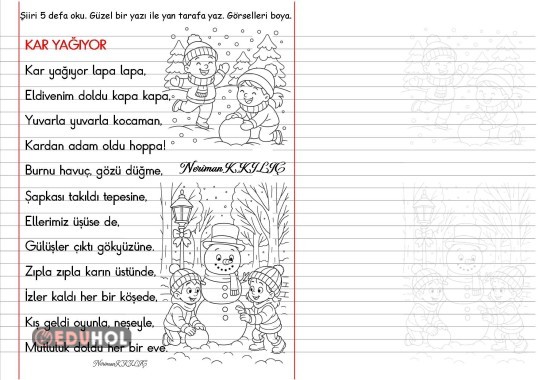 Şiiri 5 defa oku. Güzel bir yazı ile yan tarafa yaz. Görselleri boya.
KAR YAĞIYOR
Kar yağıyor lapa lapa,
Eldivenim doldu kapa kapa,
Yuvarla yuvarla kocaman,
Kardan adam oldu hoppa!
Burnu havuç, gözü düğme,
Şapkası takıldı tepesine,
Ellerimiz üşüse de,
Gülüşler çıktı gökyüzüne.
Zıpla zıpla karın üstünde,
İzler kaldı her bir köşede,
Kış geldi oyunla, neşeyle,
Mutluluk doldu her bir eve.
EDUHOL